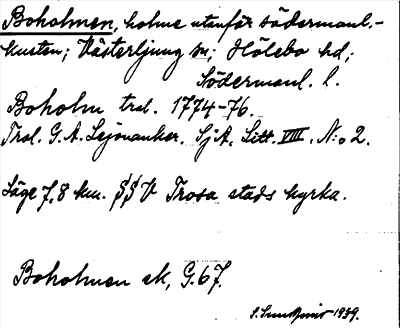 Boholmen, holme utanför södermanl.-
kusten; Västerljung sn; Hölebo hd;
Södermanl. l.
Boholm tral. 1774-76.
Tral. G. A. Lejonanker. SjA. Litt. VIII. N:o 2.
Läge 7,8 km. SSV Trosa stads kyrka.
Boholmen ek, G.67.
S. Sundqvist 1939.